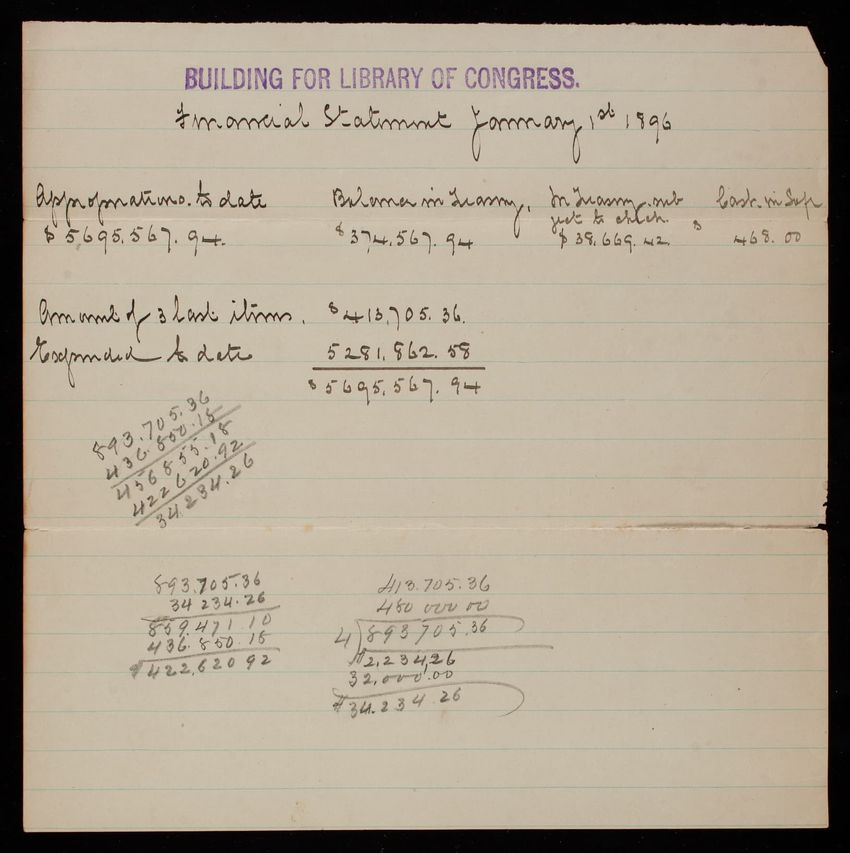 BUILDING FOR LIBRARY OF CONGRESS.
Financial Statement January 1st 1896
Appropriations to date Balance in Treasury, In Treasury sub Cash in Safe
ject to check.
$5695.567.94. $374.567.94 $38.669.42. $ 468.00
Amount of 3 last items. $413,705.36.
Expended to date 5281.862.58
$5695.567.94
893.705.36
436.850.18
456855.18
422620.92
34.234.26
893.705.36
34234.26
859.471.10
436.850.18
$422,620 92
413.705.36
480 000 00
4 893705.36
$2,234,26
32,000.00
$34.234.26